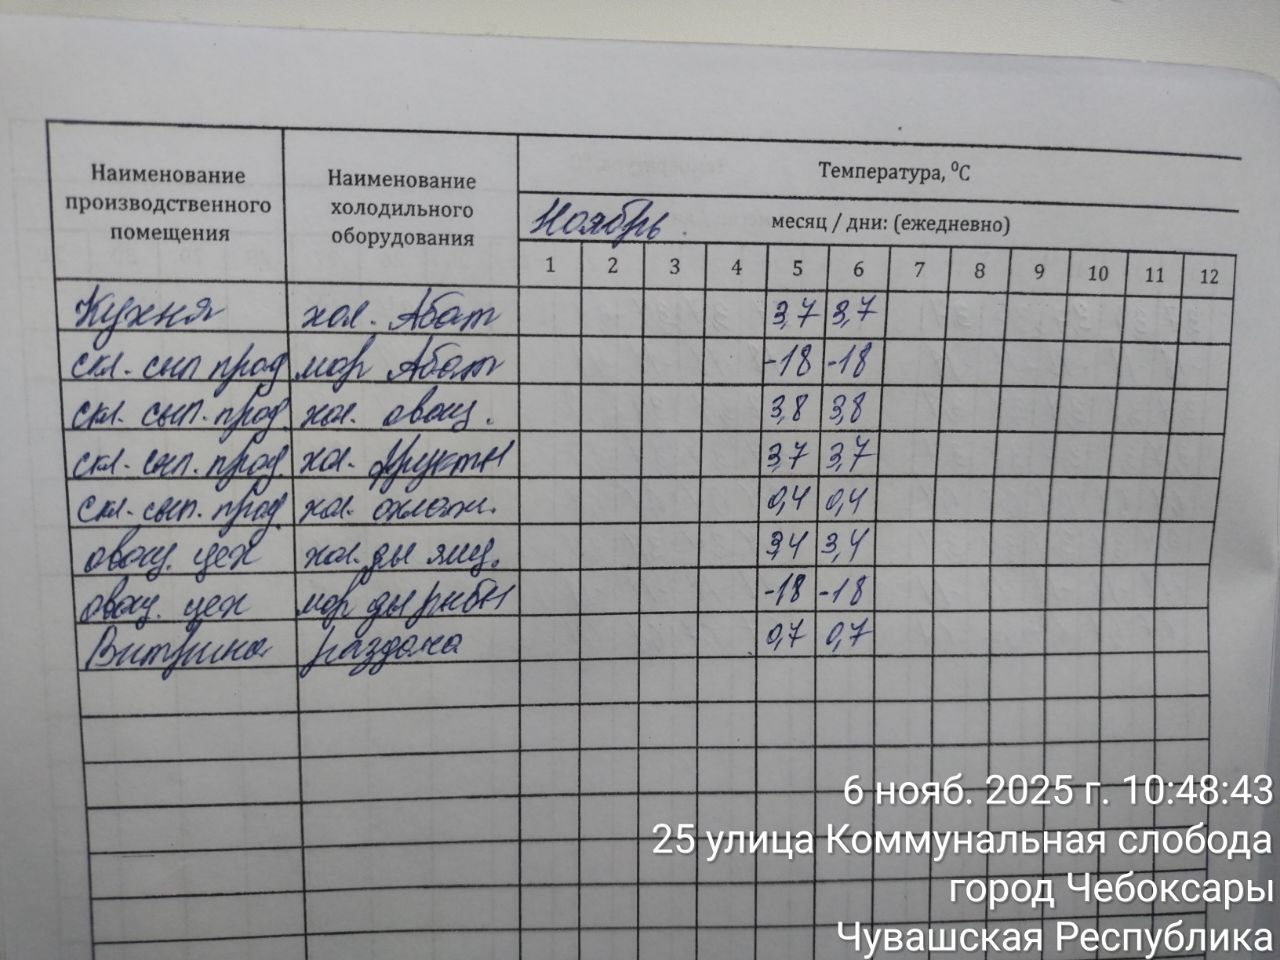 Наименование производственного помещения Наименование холодильного оборудования Температура, ⁰С
Ноябрь месяц / дни: (ежедневно)
1 2 3 4 5 6 7 8 9 10 11 12
Кухня хол. Абат 3,7 3,7
скл. сып прод мор Абат -18 -18
скл. сып. прод. хол. овощ. 3,8 3,8
скл. сып. прод. хол. фрукты 3,7 3,7
скл. сып. прод. хол. охлажд. 0,4 0,4
овощ. цех хол. ды яиц. 3,4 3,4
овощ. цех мор ды рыбы -18 -18
Витрина раздача 0,7 0,7
6 нояб. 2025 г. 10:48:43
25 улица Коммунальная слобода
город Чебоксары
Чувашская Республика